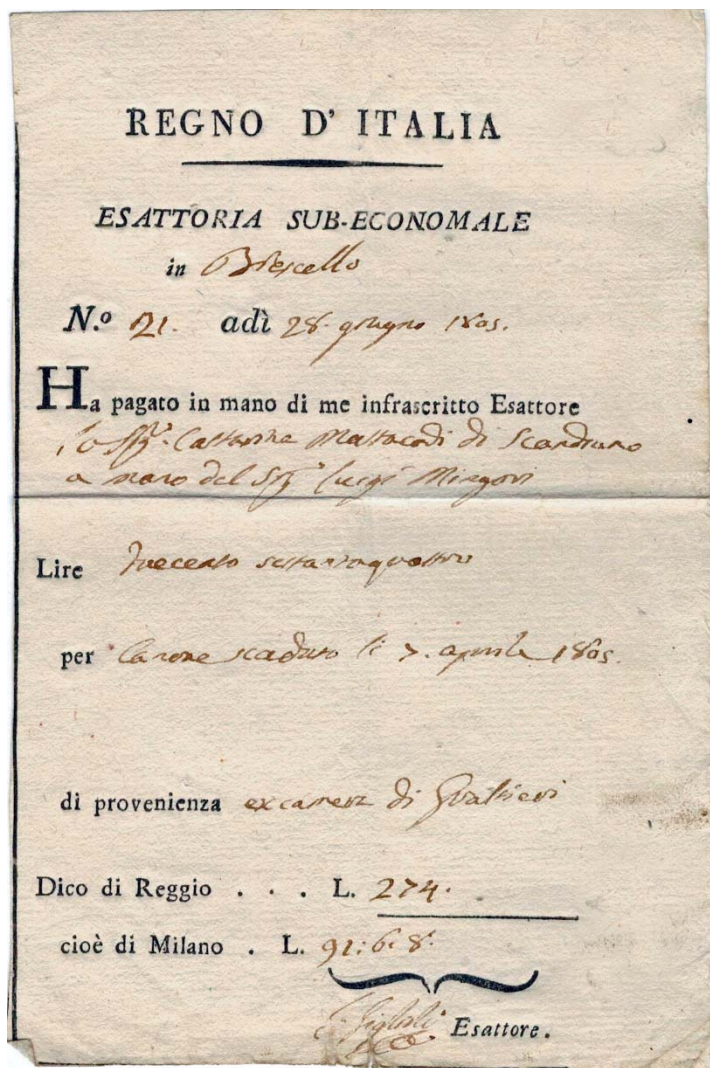 REGNO D' ITALIA
ESATTORIA SUB-ECONOMALE
in Brescello
N.º 21. adì 28. giugno 1805.
Ha pagato in mano di me infrascritto Esattore
Catterina di Scandiano
a mano del Sig.r Luigi
Lire duecento settantaquattro
per Canone scaduto li 7. aprile 1805.
di provenienza excamera di Gualtieri
Dico di Reggio . . . L. 274.
cioè di Milano . L. 91:6:8.
Esattore.